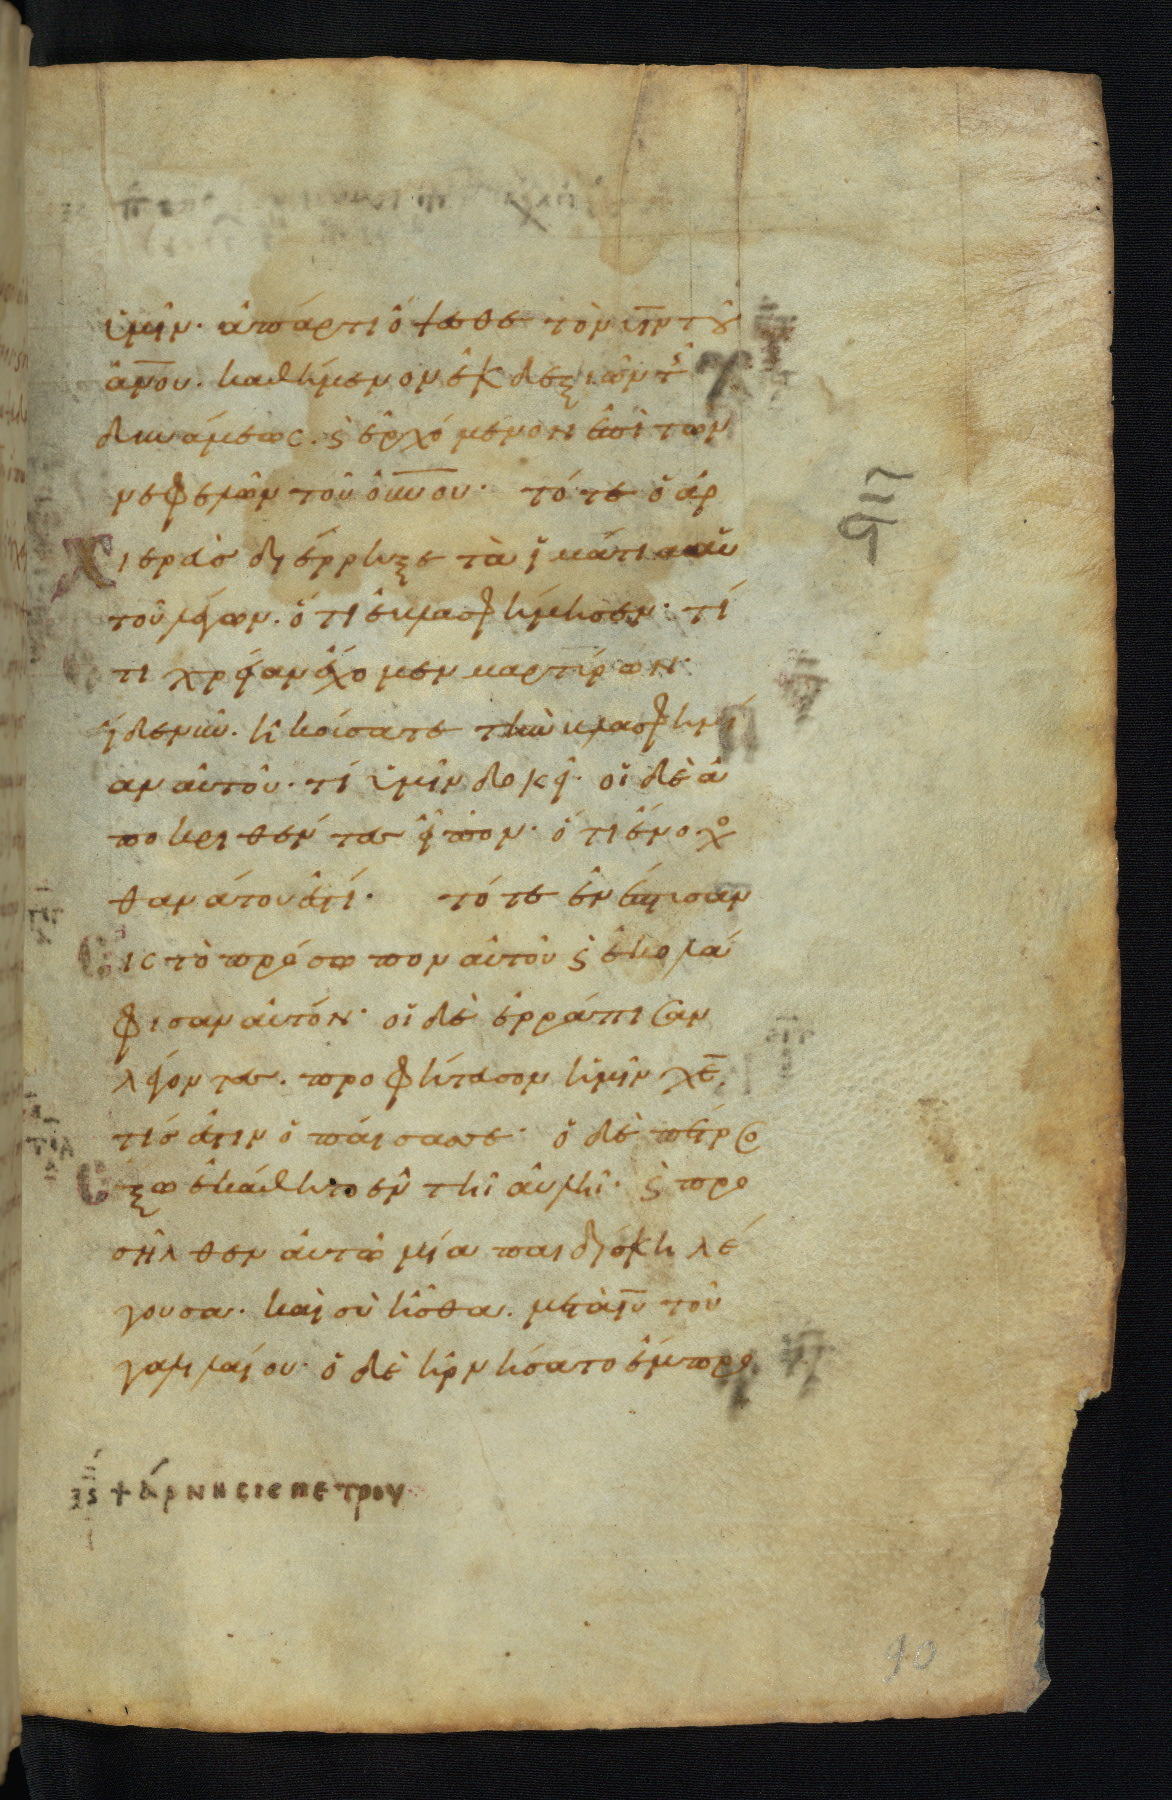 ὑμῖν· ἀπάρτι ὄψεσθε τὸν υ̅ν̅ τοῦ
α̅ν̅ο̅υ· καθήμενον ἐκ δεξιῶν τῆς
δυνάμεως· ϛ ἐρχόμενον ἐπὶ τῶν
νεφελῶν τοῦ ο̅υ̅ν̅ου· τότε ὁ ἀρ
Χιερεὺσ διέρρηξε τὰ ἱμάτια αὐ
τοῦ λέγων· ὅτι ἐβλασφήμησεν· τί
ἔτι χρείαν ἔχομεν μαρτύρων·
ἴδε νῦν· ἠκούσατε τὴν βλασφημί
αν αὐτοῦ· τί ὑμῖν δοκεῖ· οἱ δὲ ἀ
ποκριθέντες εἶπον· ὅτι ἔνοχο
θανάτου ἐστί· τότε ἐνέπτυσαν
Εις τὸ πρόσωπον αὐτοῦ ϛ ἐκολά
φισαν αὐτόν· οἱ δὲ ἐρράπισαν
λέγοντεσ· προφήτευσον ἡμῖν χ̅ε̅
τίσ ἐστιν ὁ παίσασ σε· ὁ δὲ πέτροσ
Ἔξω ἐκάθητο ἐν τῆι αὐλῆι· ϛ προ
σῆλθεν αὐτῶ μία παιδίσκη λέ
γουσα· καὶ σὺ ἦσθα· μετὰ ι̅υ̅ τοῦ
γαλιλαίου· ὁ δὲ ἠρνήσατο ἔμπρο
+ ἄρνησις πετρου
90